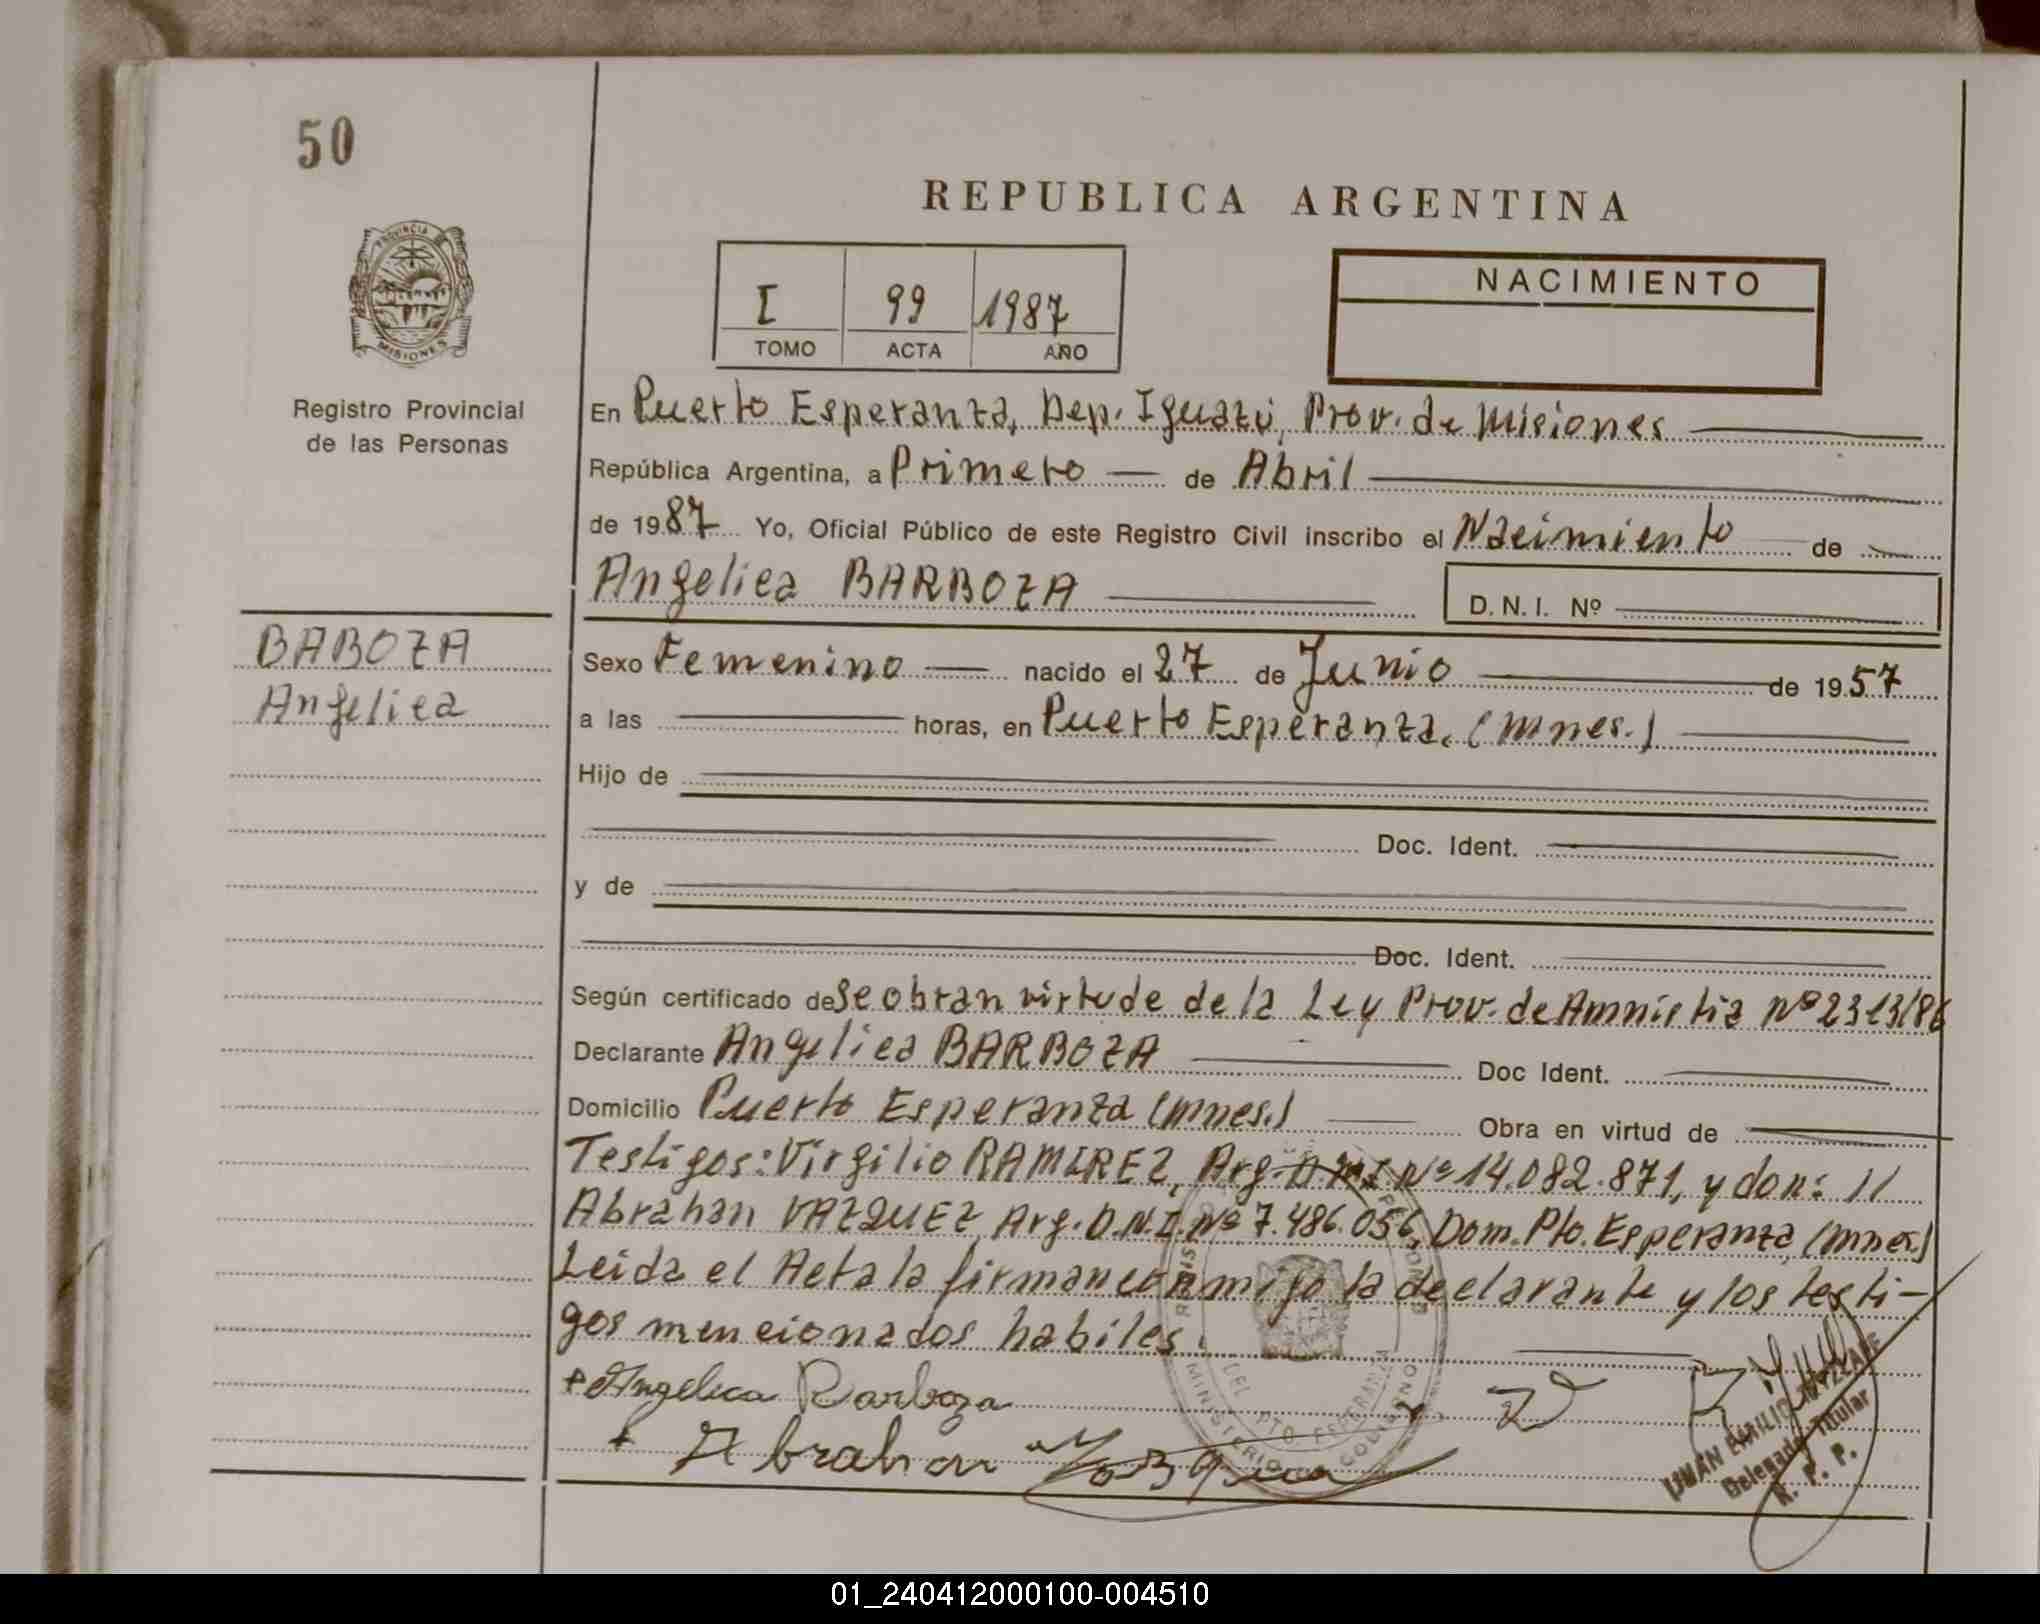 50
REPUBLICA ARGENTINA
PROVINCIA DE
MISIONES
Registro Provincial
de las Personas
I 99 1987
TOMO ACTA AÑO
NACIMIENTO
En Puerto Esperanza, Dep. Iguazú, Prov. de Misiones
República Argentina, a Primero de Abril
de 1987 Yo, Oficial Público de este Registro Civil inscribo el Nacimiento de
Angelica BARBOZA D.N.I. Nº
BABOZA
Angelica
Sexo Femenino nacido el 27 de Junio de 1957
a las horas, en Puerto Esperanza, (Mnes.)
Hijo de
Doc. Ident.
y de
Doc. Ident.
Según certificado de Se obran virtude de la Ley Prov. de Amnistia Nº 2313/86
Declarante Angelica BARBOZA Doc Ident.
Domicilio Puerto Esperanza (Mnes.) Obra en virtud de
Testigos: Virgilio RAMIREZ, Arg. D.N.I. Nº 14.082.871, y don: //
Abrahan VAZQUEZ, Arg. D.N.I. Nº 7.486.056, Dom. Pto. Esperanza, (Mnes.)
Leida el Acta la firman conmigo la declarante y los testi-
gos mencionados habiles.
+ Angelica Barboza
+ Abrahan
JUAN EMILIO
Delegado Titular
R. P. P.
MINISTERIO DE GOBIERNO
PTO. ESPERANZA
01_240412000100-004510